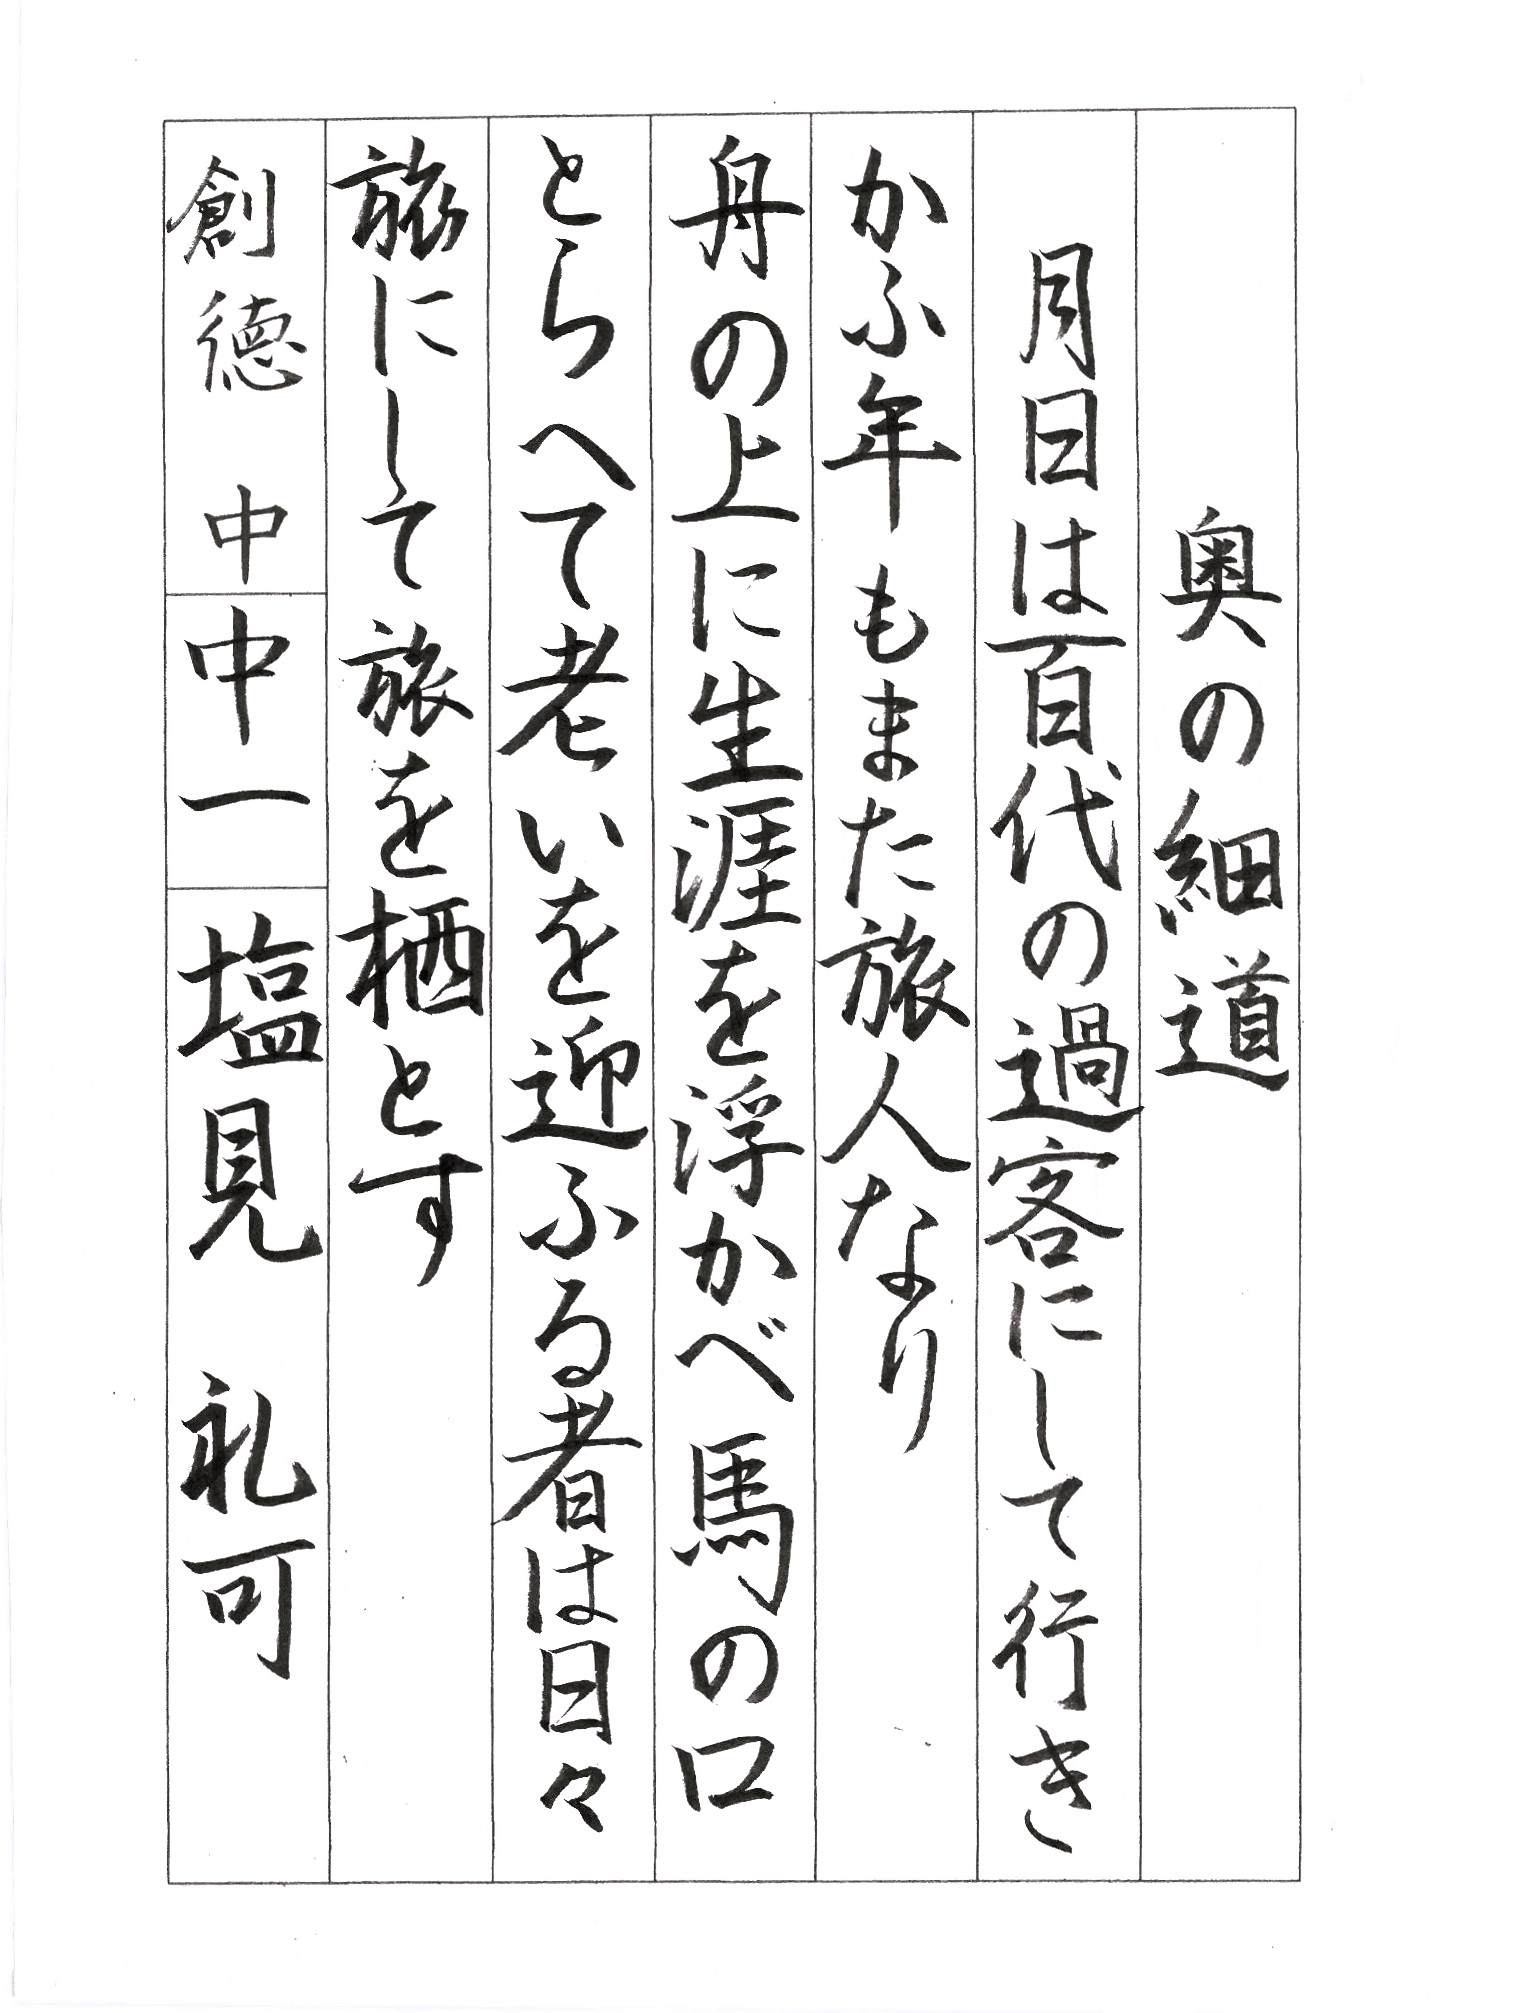 奥の細道
月日は百代の過客にして行き
かふ年もまた旅人なり
舟の上に生涯を浮かべ馬の口
とらへて老いを迎ふる者は日々
旅にして旅を栖とす
創徳中 中一 塩見 礼可